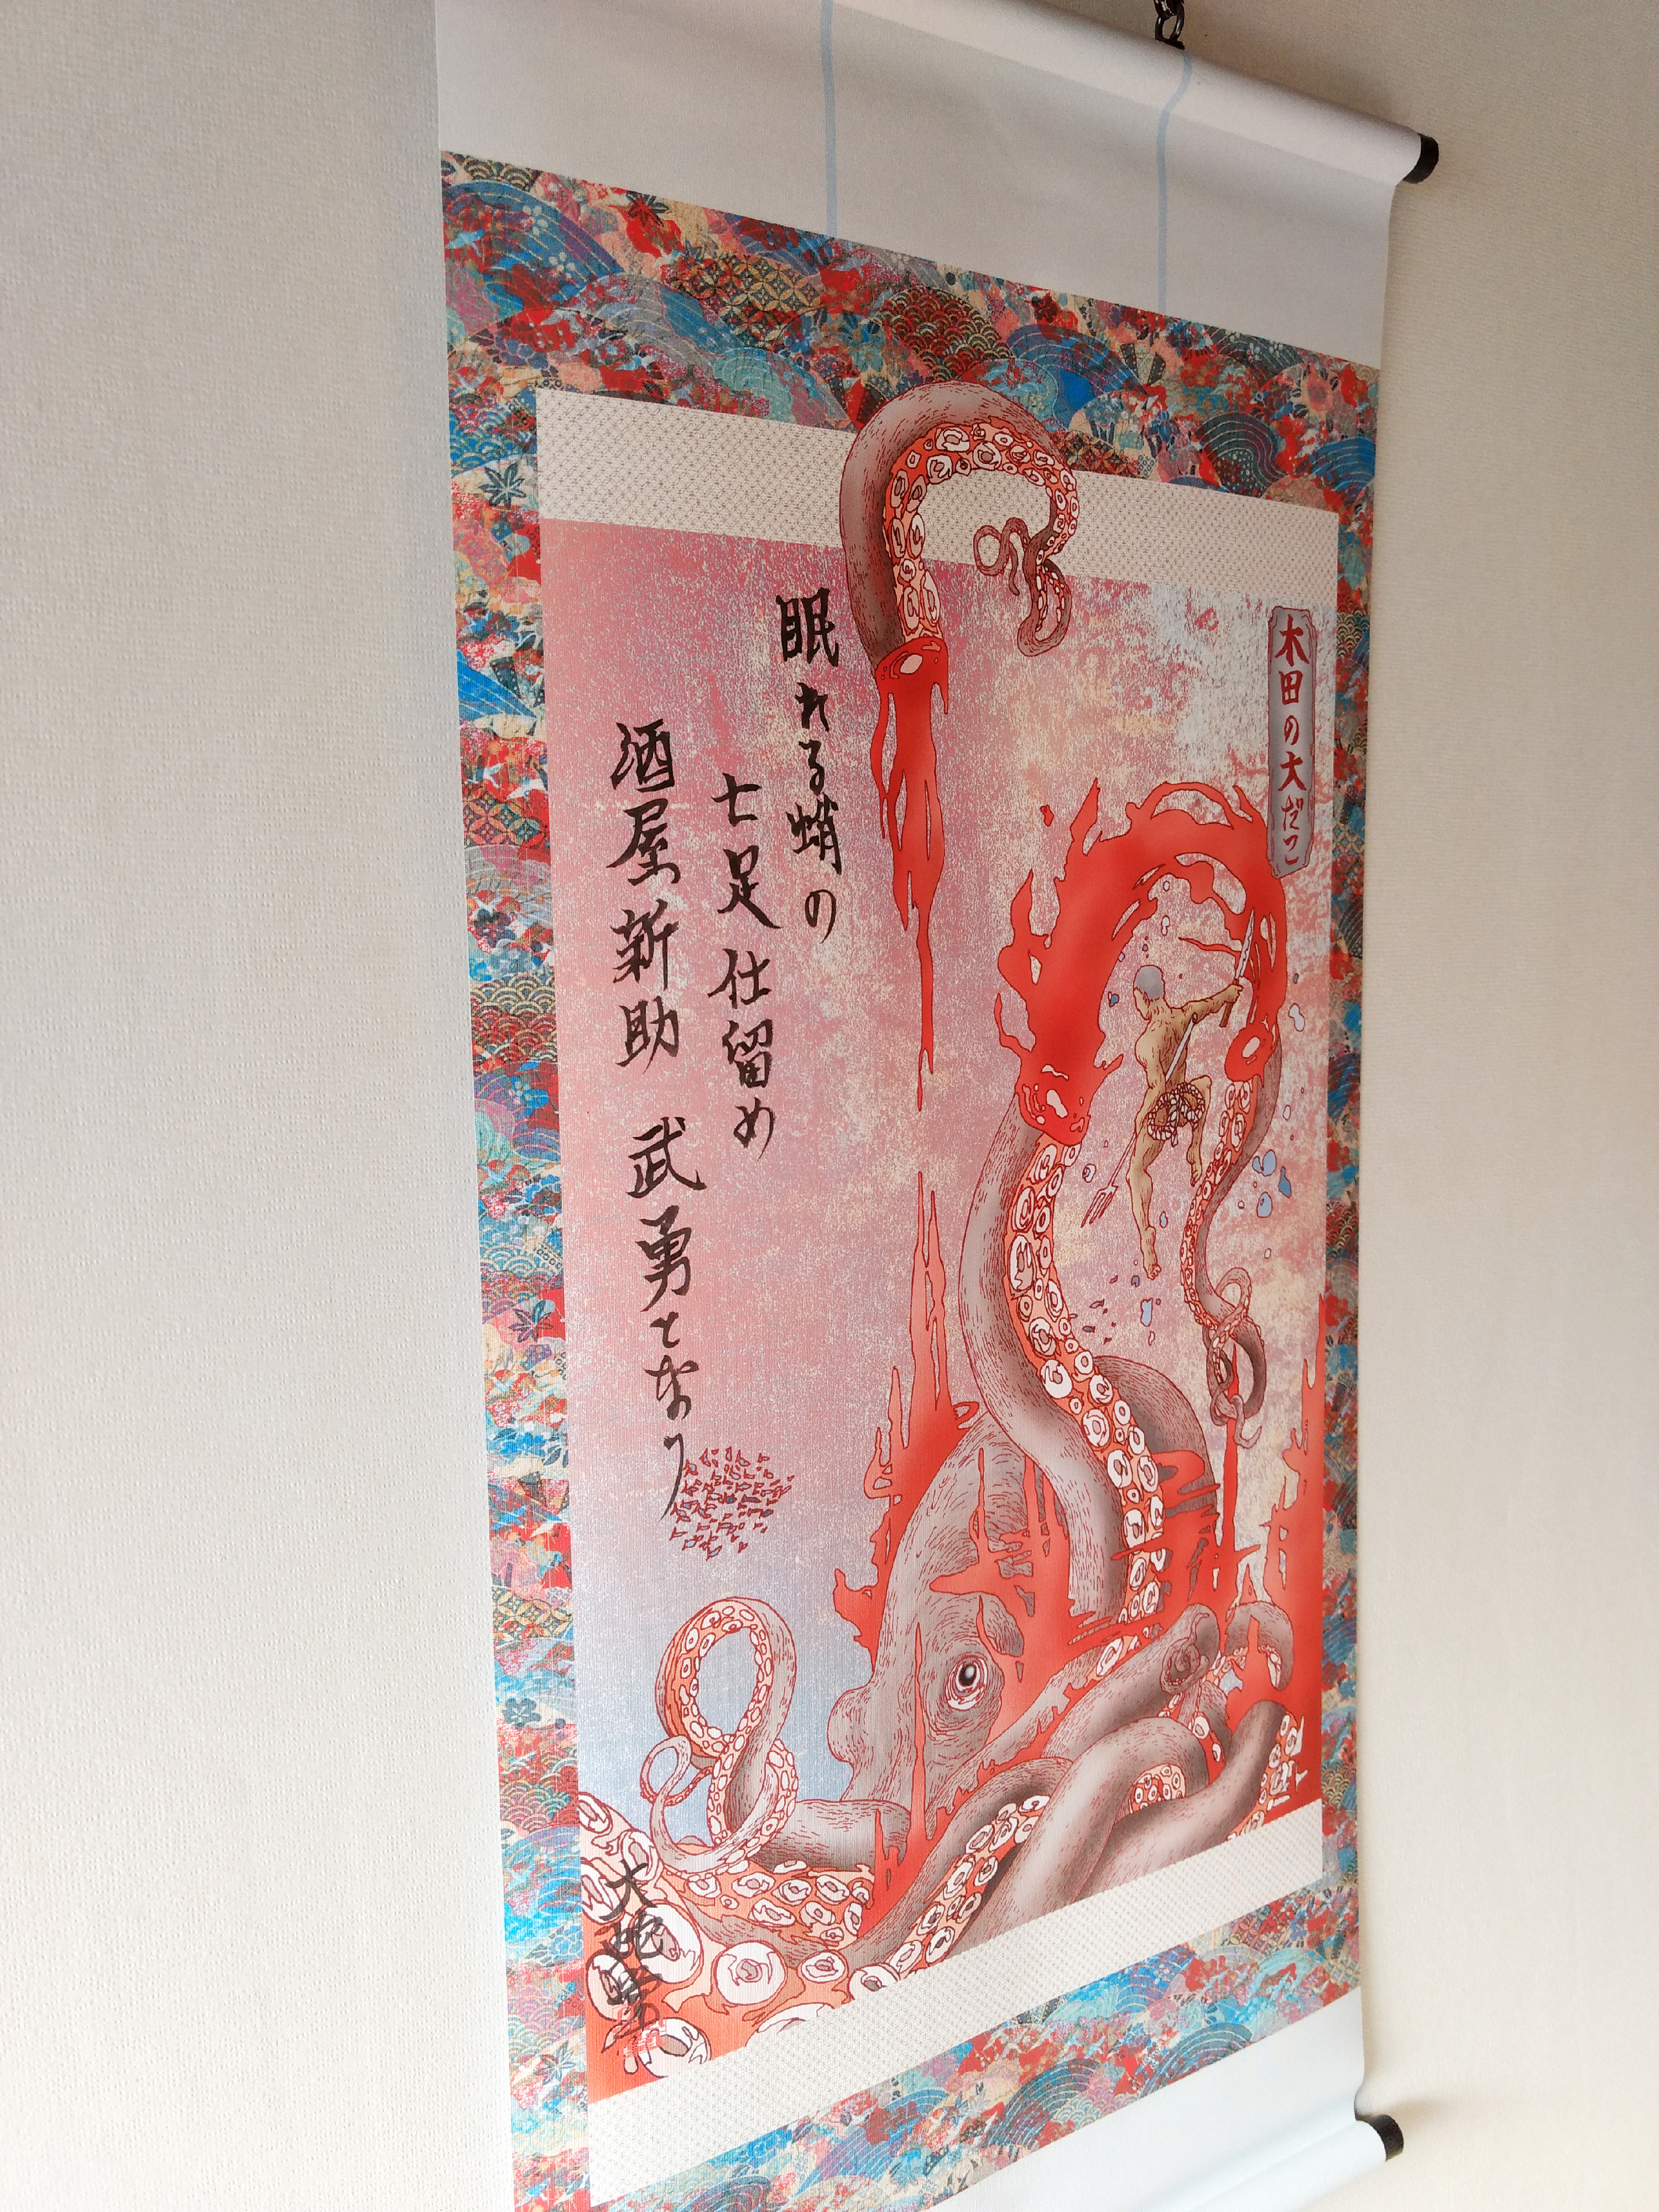 木田の大だこ
眠れる蛸の
七足仕留め
酒屋新助 武勇となり
大蛇堂